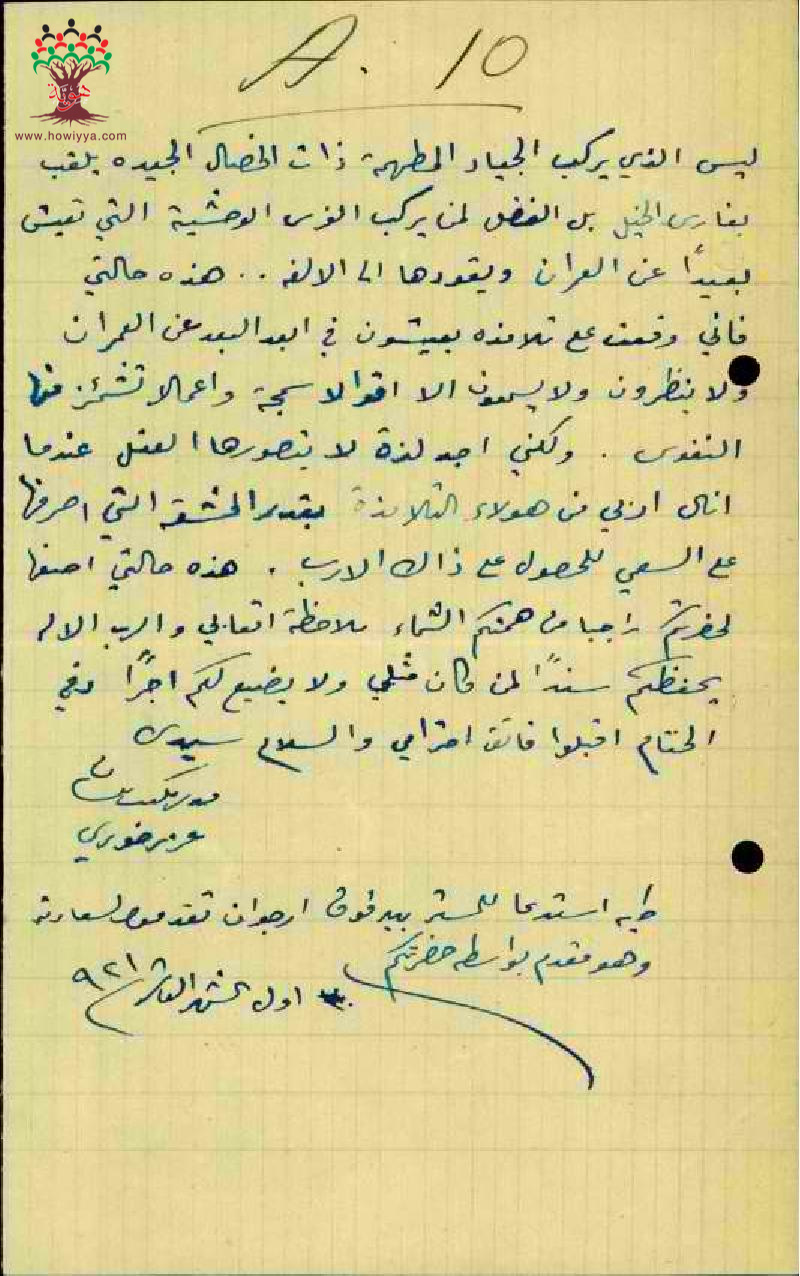 A. 10
هوية
www.howiyya.com
ليس الذي يركب الجياد المطهمة ذات الخصال الجيده يلقب
بفارس الخيل بل الفضل لمن يركب الفرس الوحشية التي تعيش
بعيداً عن العمران ويقودها الى الالفه .. هذه حالتي
فاني وقعت على تلامذه يعيشون في ابعد البعد عن العمران
ولا ينظرون ولا يسمعون الا اقوالا سمجة واعمالا تشمئز منها
النفوس . ولكني اجد لذة لا يتصورها العقل عندما
انال اربي من هولاء التلامذة بقدر المشقه التي اصرفها
على السعي للحصول على ذاك الارب . هذه حالتي اصفها
لحضرتكم راجيا من همتكم الشماء ملاحظة اتعابي والرب الاله
يحفظكم سنداً لمن كان مثلي ولا يضيع لكم اجراً وفي
الختام اقبلوا فائق احترامي والسلام سيدي
خوري
طيه استدعا للمستر بيدفوق ارجو ان تقدموه لسعادته
وهو مقدم بواسطه حضرتكم
اول الشهر العاشر ٩٢١